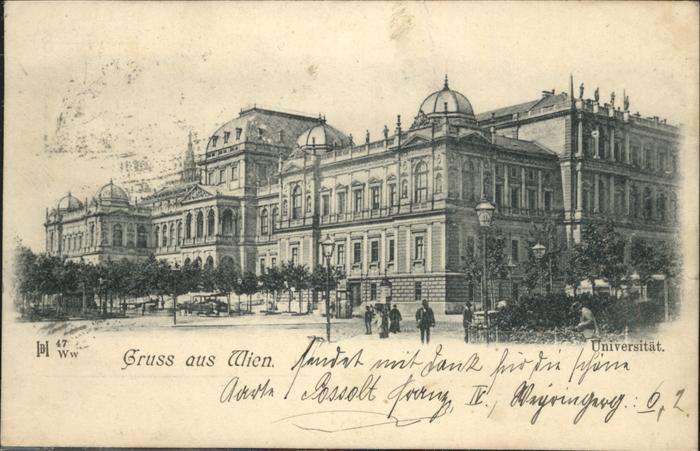 Universität.
47
Ww
Gruss aus Wien.
Sendet mit Dank für die schöne
Karte Possolt Franz, IV., Weyringerg.: 6, 2.